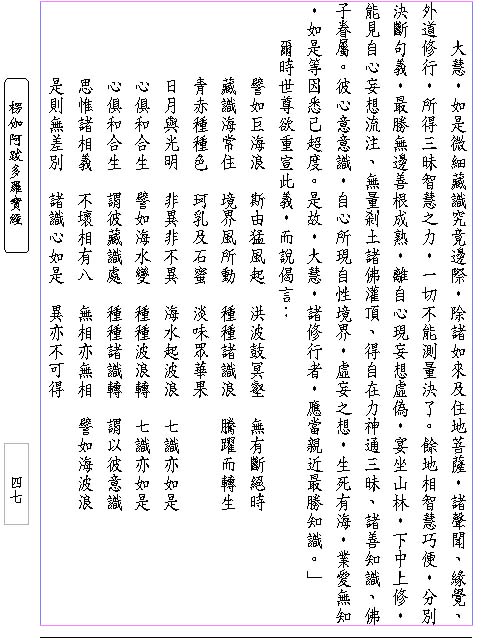 大慧．如是微細藏識究竟邊際．除諸如來及住地菩薩．諸聲聞、緣覺、
外道修行．所得三昧智慧之力．一切不能測量決了。餘地相智慧巧便．分別
決斷句義．最勝無邊善根成熟．離自心現妄想虛偽．宴坐山林．下中上修．
能見自心妄想流注、無量剎土諸佛灌頂、得自在力神通三昧、諸善知識、佛
子眷屬。彼心意意識．自心所現自性境界．虛妄之想．生死有海．業愛無知
．如是等因悉已超度。是故．大慧．諸修行者．應當親近最勝知識。」
爾時世尊欲重宣此義．而說偈言：
譬如巨海浪 斯由猛風起 洪波鼓冥壑 無有斷絕時
藏識海常住 境界風所動 種種諸識浪 騰躍而轉生
青赤種種色 珂乳及石蜜 淡味眾華果
日月與光明 非異非不異 海水起波浪 七識亦如是
心俱和合生 譬如海水變 種種波浪轉 七識亦如是
心俱和合生 謂彼藏識處 種種諸識轉 謂以彼意識
思惟諸相義 不壞相有八 無相亦無相 譬如海波浪
是則無差別 諸識心如是 異亦不可得
楞伽阿跋多羅寶經
四七